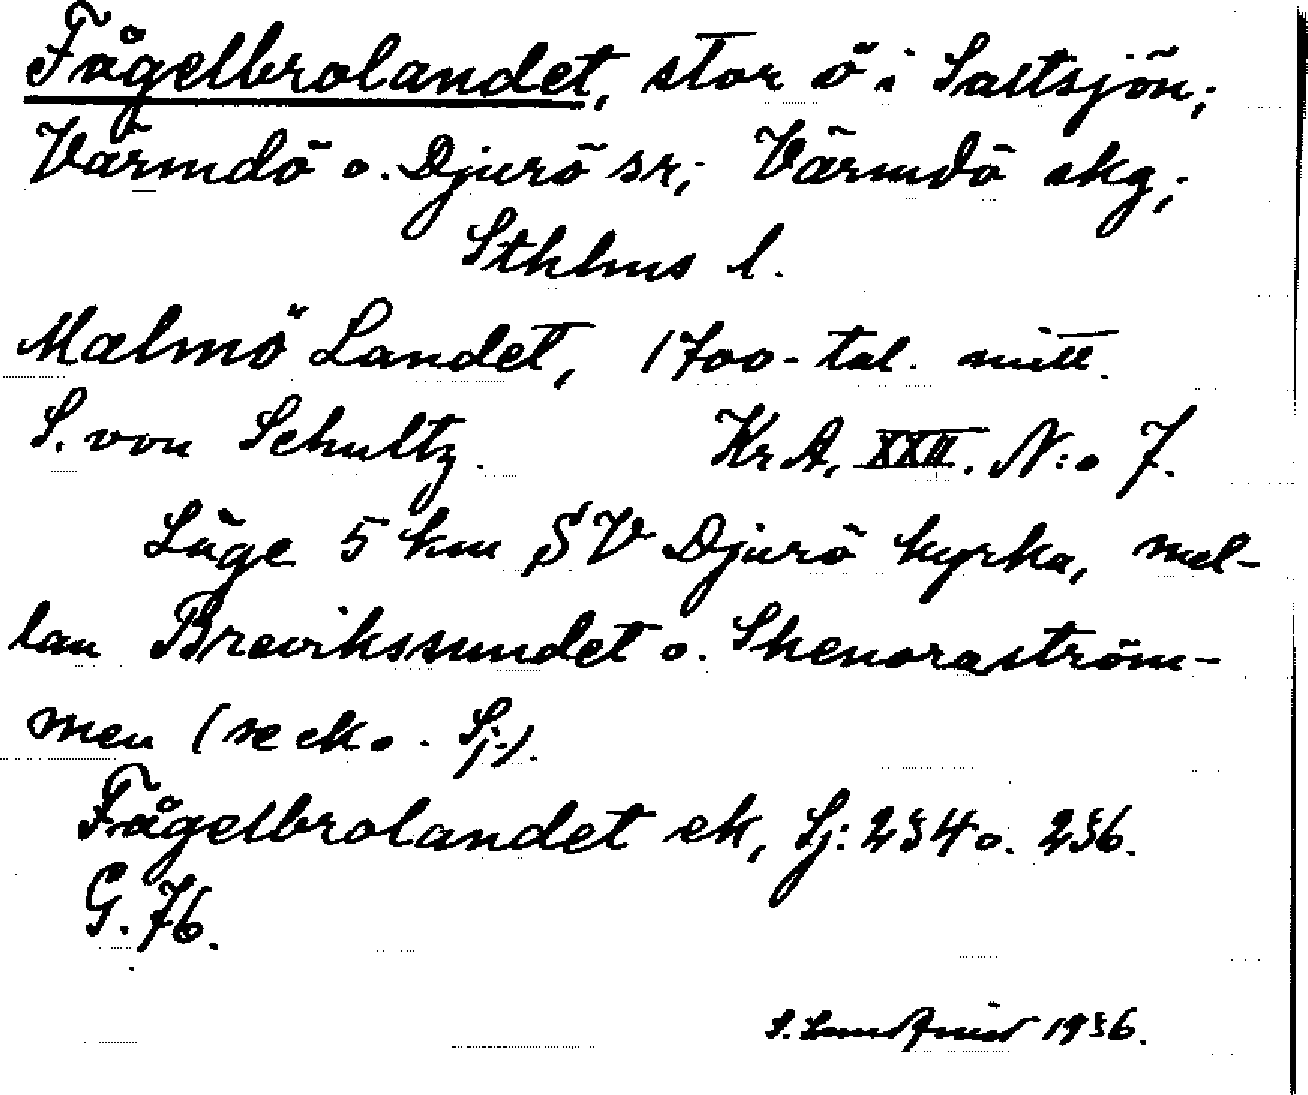 Fågelbrolandet, stor ö i Saltsjön;
Värmdö o. Djurö sr; Värmdö skg;
Sthlms l.
Malmö Landet, 1700-tal. mitt.
S. von Schultz. Kr A, XXII. N:o 7.
Läge 5 km SV Djurö kyrka, mel-
lan Brevikssundet o. Skenoraström-
men (se ek o. Sj.).
Fågelbrolandet ek, Sj: 234 o. 236.
G. 76.
1936.